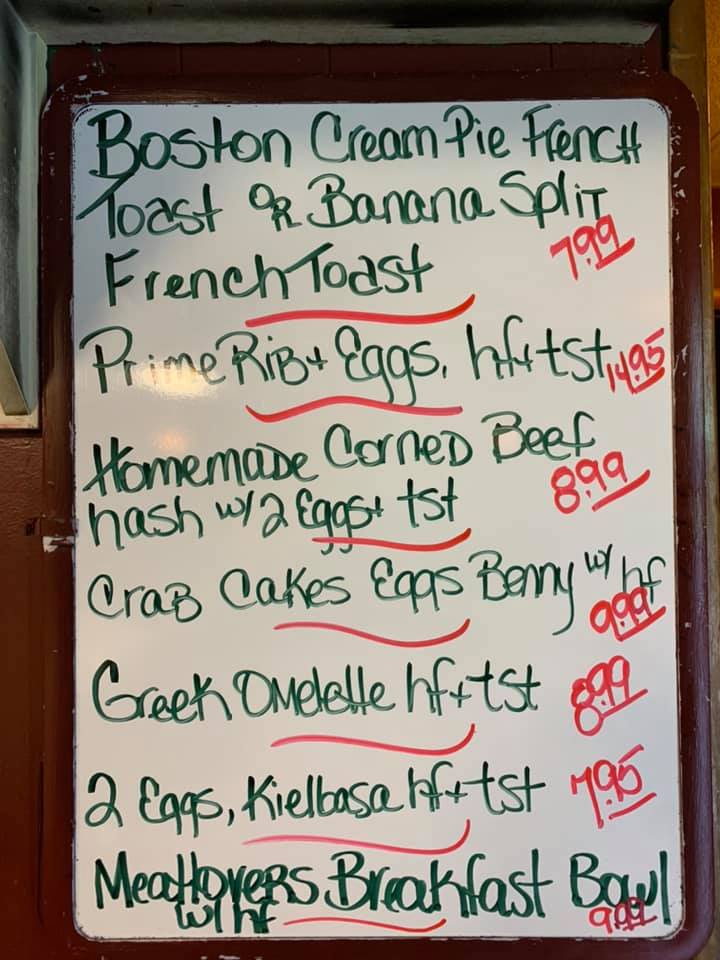 Boston Cream Pie French
Toast OR Banana Split
French Toast 7.99
Prime Rib + Eggs, hf + tst 14.95
Homemade Corned Beef
hash w/2 Eggs + tst 8.99
Crab Cakes Eggs Benny w/ hf
9.99
Greek Omelette hf + tst 8.99
2 Eggs, Kielbasa hf + tst 7.95
Meatlovers Breakfast Bowl
w/ hf 9.99